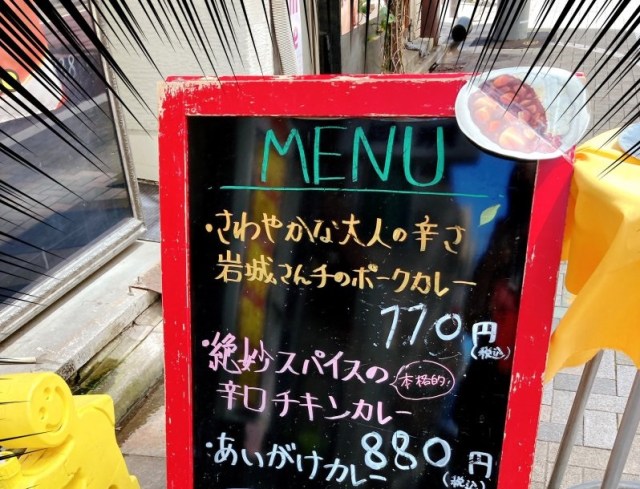 MENU
・さわやかな大人の辛さ
岩城さん千のポークカレー
770円
(税込)
・絶妙スパイスの
本格的!
辛口チキンカレー
880円
(税込)
・あいがけカレー